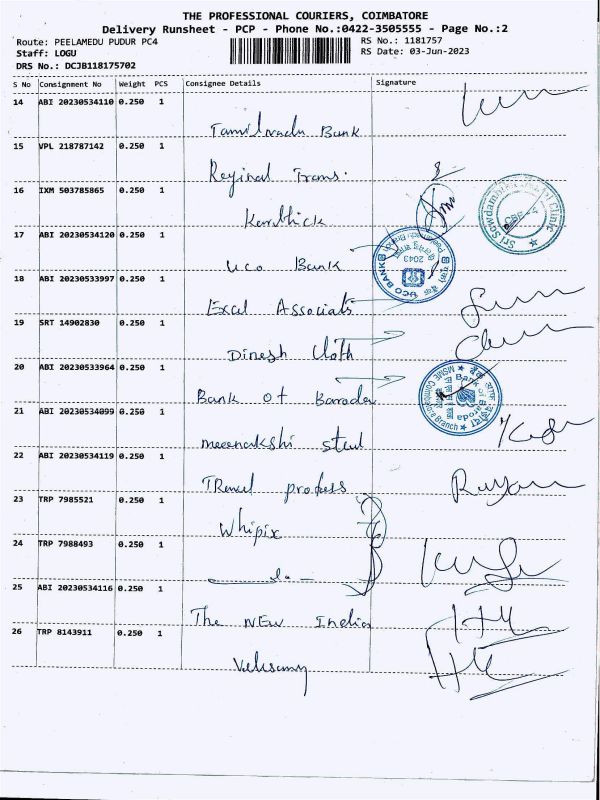 THE PROFESSIONAL COURIERS, COIMBATORE
Delivery Runsheet - PCP - Phone No.:0422-3505555 - Page No.:2
Route: PEELAMEDU PUDUR PC4 RS No.: 1181757
Staff: LOGU RS Date: 03-Jun-2023
DRS No.: DCJB118175702
S No Consignment No Weight PCS Consignee Details Signature
14 ABI 20230534110 0.250 1
Tamilnadu Bank
15 VPL 218787142 0.250 1
Reginal Trans.
16 IXM 503785865 0.250 1
Karthick
17 ABI 20230534120 0.250 1
UCO Bank
18 ABI 20230533997 0.250 1
Excel Associats
19 SRT 14902830 0.250 1
Dinesh Cloth
20 ABI 20230533964 0.250 1
Bank of Baroda
21 ABI 20230534099 0.250 1
meenakshi steel
22 ABI 20230534119 0.250 1
23 TRP 7985521 0.250 1
Whipix
24 TRP 7988493 0.250 1
25 ABI 20230534116 0.250 1
The NEW India
26 TRP 8143911 0.250 1
UCO BANK
2043
Bank of Baroda
MSME Coimbatore Branch